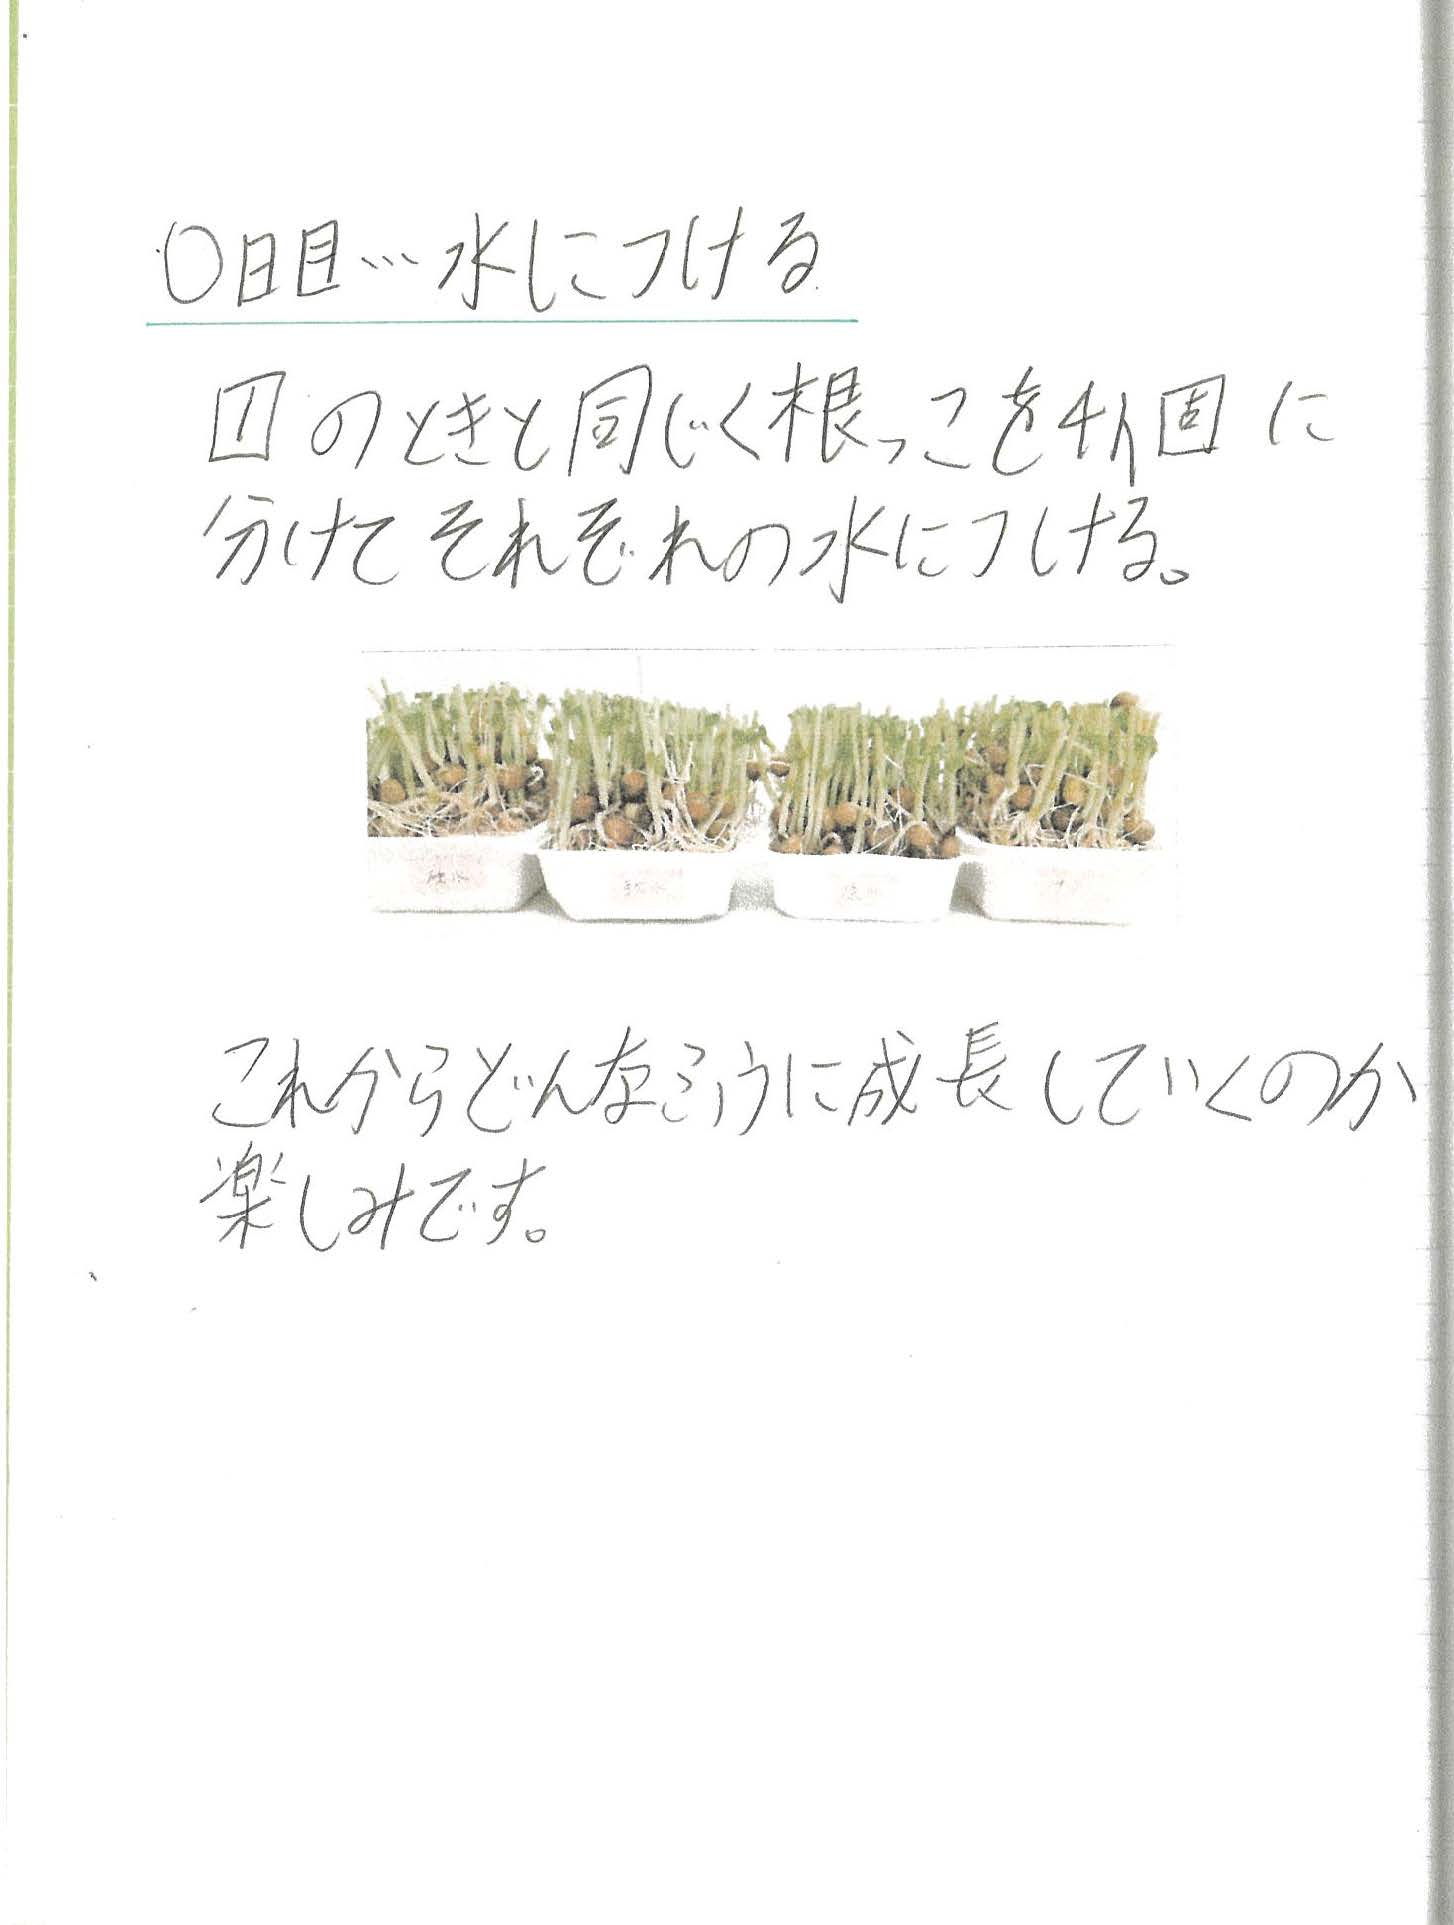 0日目…水につける
1のときと同じく根っこを4個に
分けてそれぞれの水につける。
硬水 軟水
これからどんなふうに成長していくのか
楽しみです。